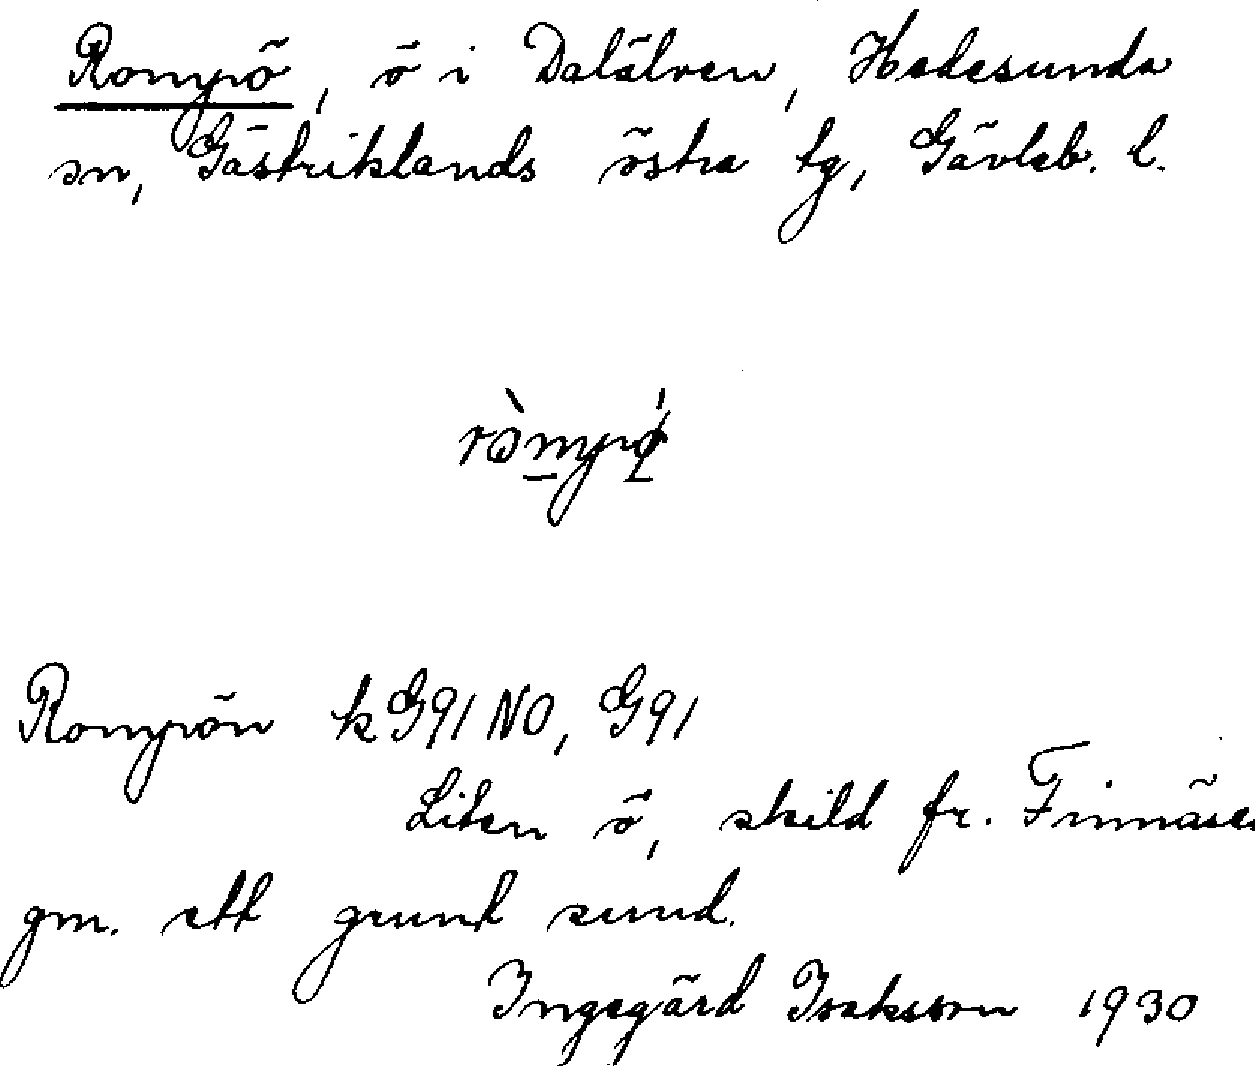 Rompö, ö i Dalälven, Hedesunda
sn, Gästriklands östra tg, Gävleb. l.
ròmpǿ
Rompön k G91 NO, G91
Liten ö, skild fr. Finnäset
gm. ett grunt sund.
Ingegärd Isaksson 1930